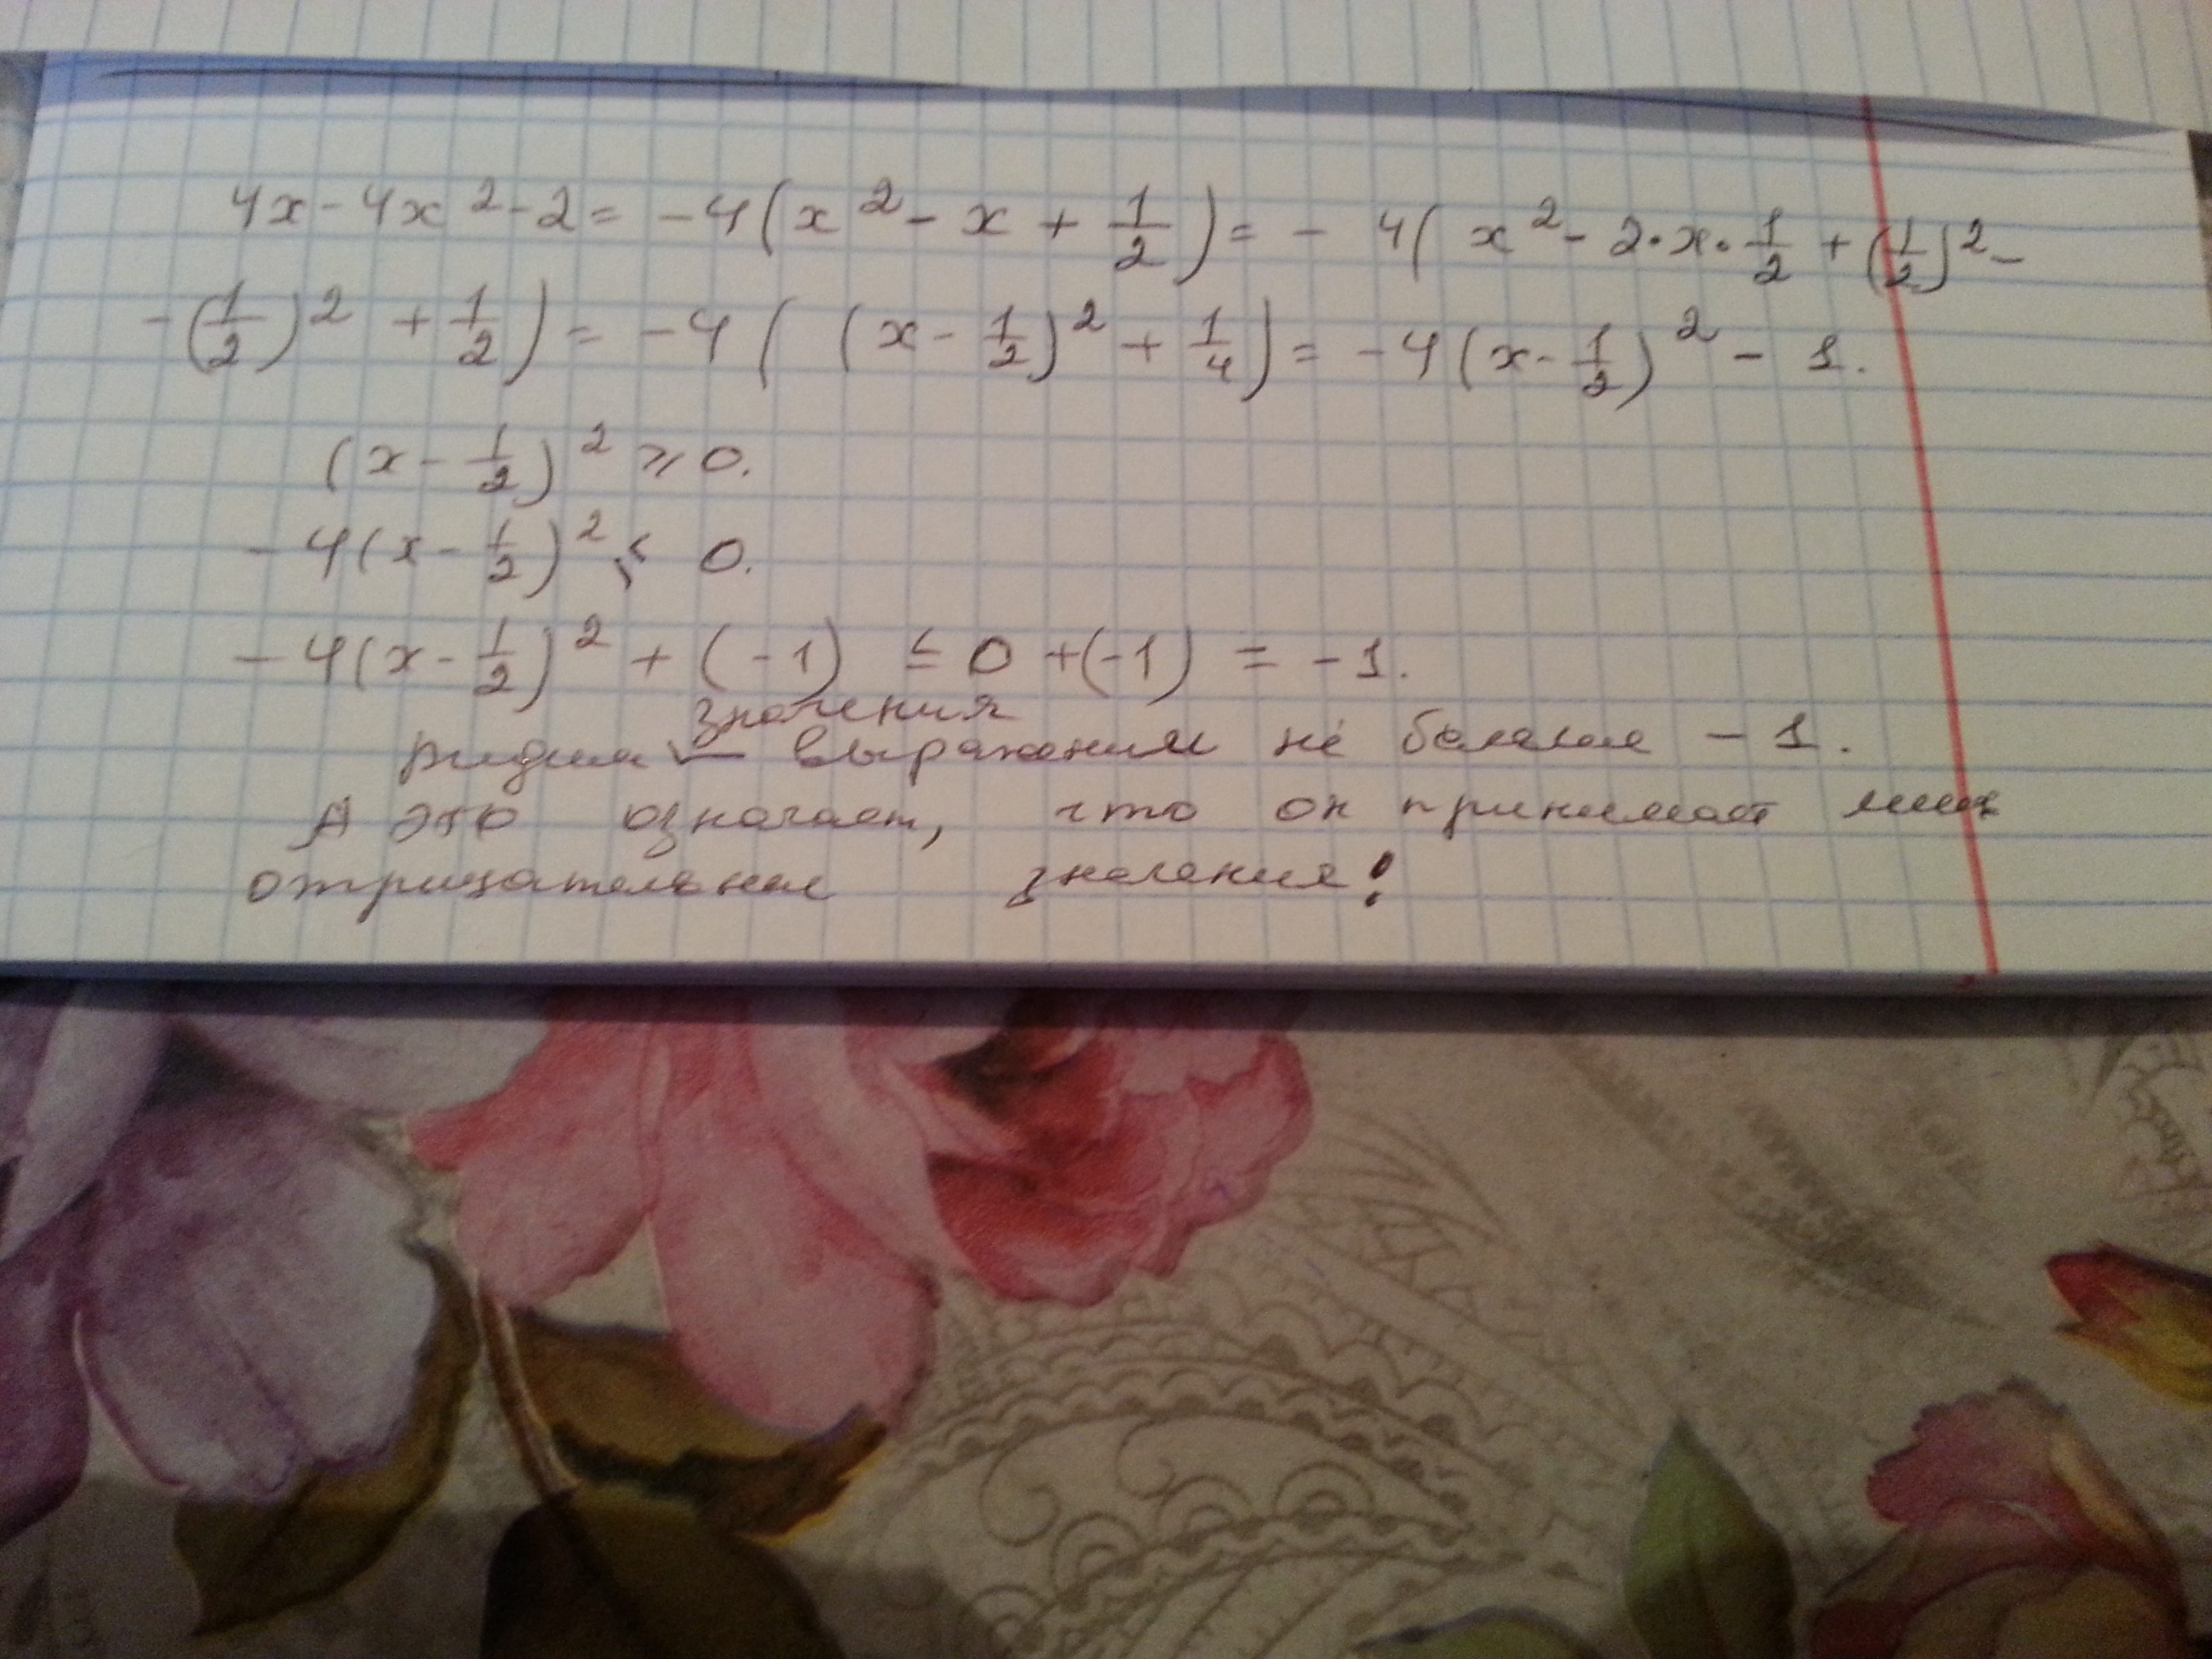 4x - 4x² - 2 = -4(x² - x + 1/2) = - 4(x² - 2·x·1/2 + (1/2)² -
- (1/2)² + 1/2) = -4((x - 1/2)² + 1/4) = -4(x - 1/2)² - 1.
(x - 1/2)² ≥ 0.
- 4(x - 1/2)² ≤ 0.
- 4(x - 1/2)² + (-1) ≤ 0 + (-1) = -1.
значения
выражения не больше -1.
А это означает, что он принимает лишь
отрицательные значения!